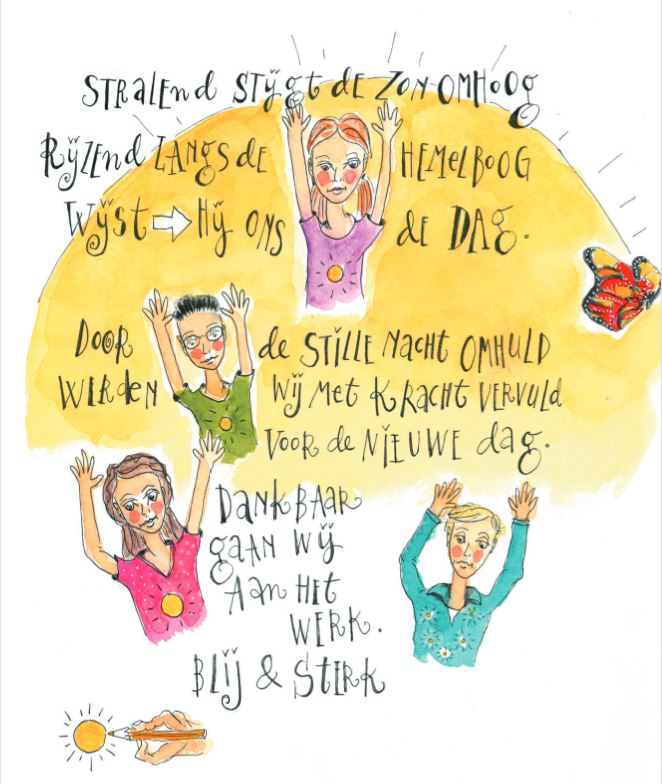 Stralend stijgt de zon omhoog
Rijzend langs de hemelboog
Wijst ⇨ Hij ons de dag.
Door de stille nacht omhuld
werden wij met kracht vervuld
voor de nieuwe dag.
Dankbaar
gaan wij
aan het
werk.
Blij & sterk